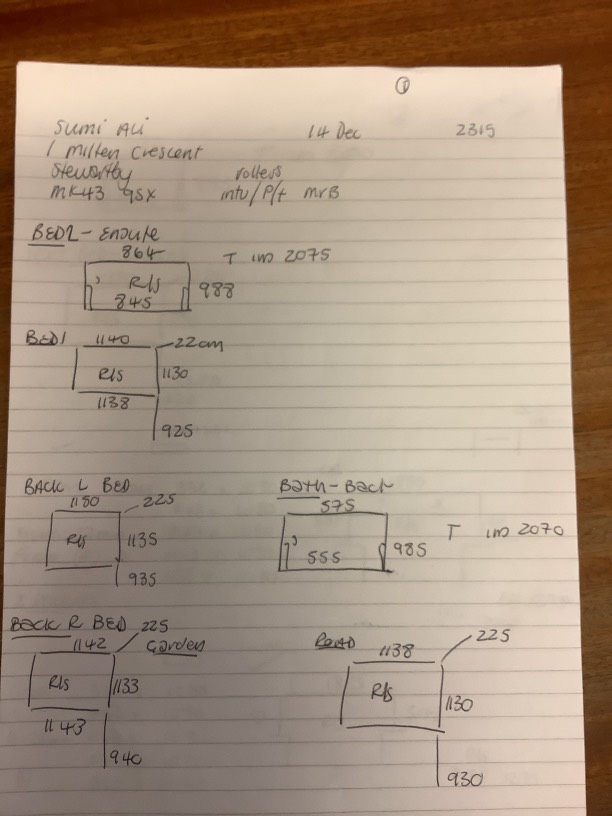 1
Sumi Ali 14 Dec 2315
1 Milten Crescent
Stewartby rollers
MK43 9SX mtu/P/t MrB
BED2 - Ensuite
864 T im 2075
R/s 988
845
BED1
1140 22cm
R/s 1130
1138
925
BACK L BED Bath - Back
1180 225 575
R/s 1135 T im 2070
555 985
935
BACK R BED 225
1142 Garden ROAD 1138 225
R/s 1133 R/s 1130
1143
940 930